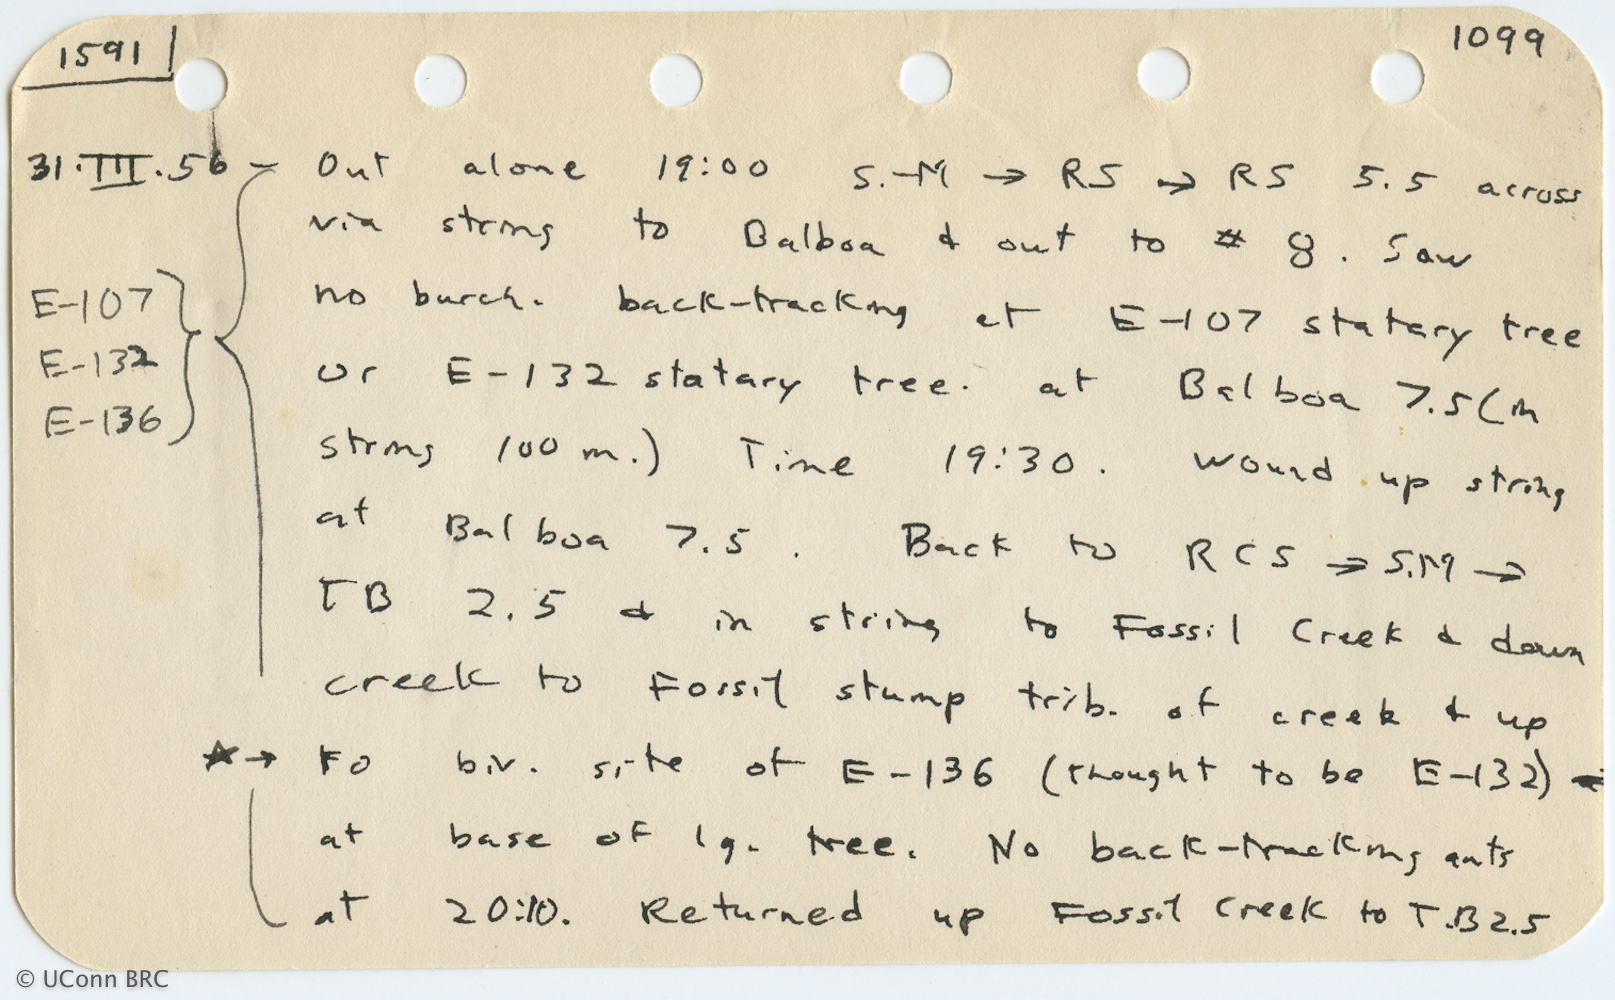 1591
1099
31.III.56 – Out alone 19:00 S.-M → RS → RS 5.5 across
via string to Balboa & out to # 8. Saw
no burch. back-tracking at E-107 statary tree
or E-132 statary tree. at Balboa 7.5 (in
string 100 m.) Time 19:30. Wound up string
at Balboa 7.5. Back to RCS → S.M →
TB 2.5 & in string to Fossil Creek & down
creek to Fossil stump trib. of creek & up
★→ to biv. site of E-136 (thought to be E-132)
at base of lg. tree. No back-tracking ants
at 20:10. Returned up Fossil Creek to T.B 2.5
E-107
E-132
E-136
© UConn BRC